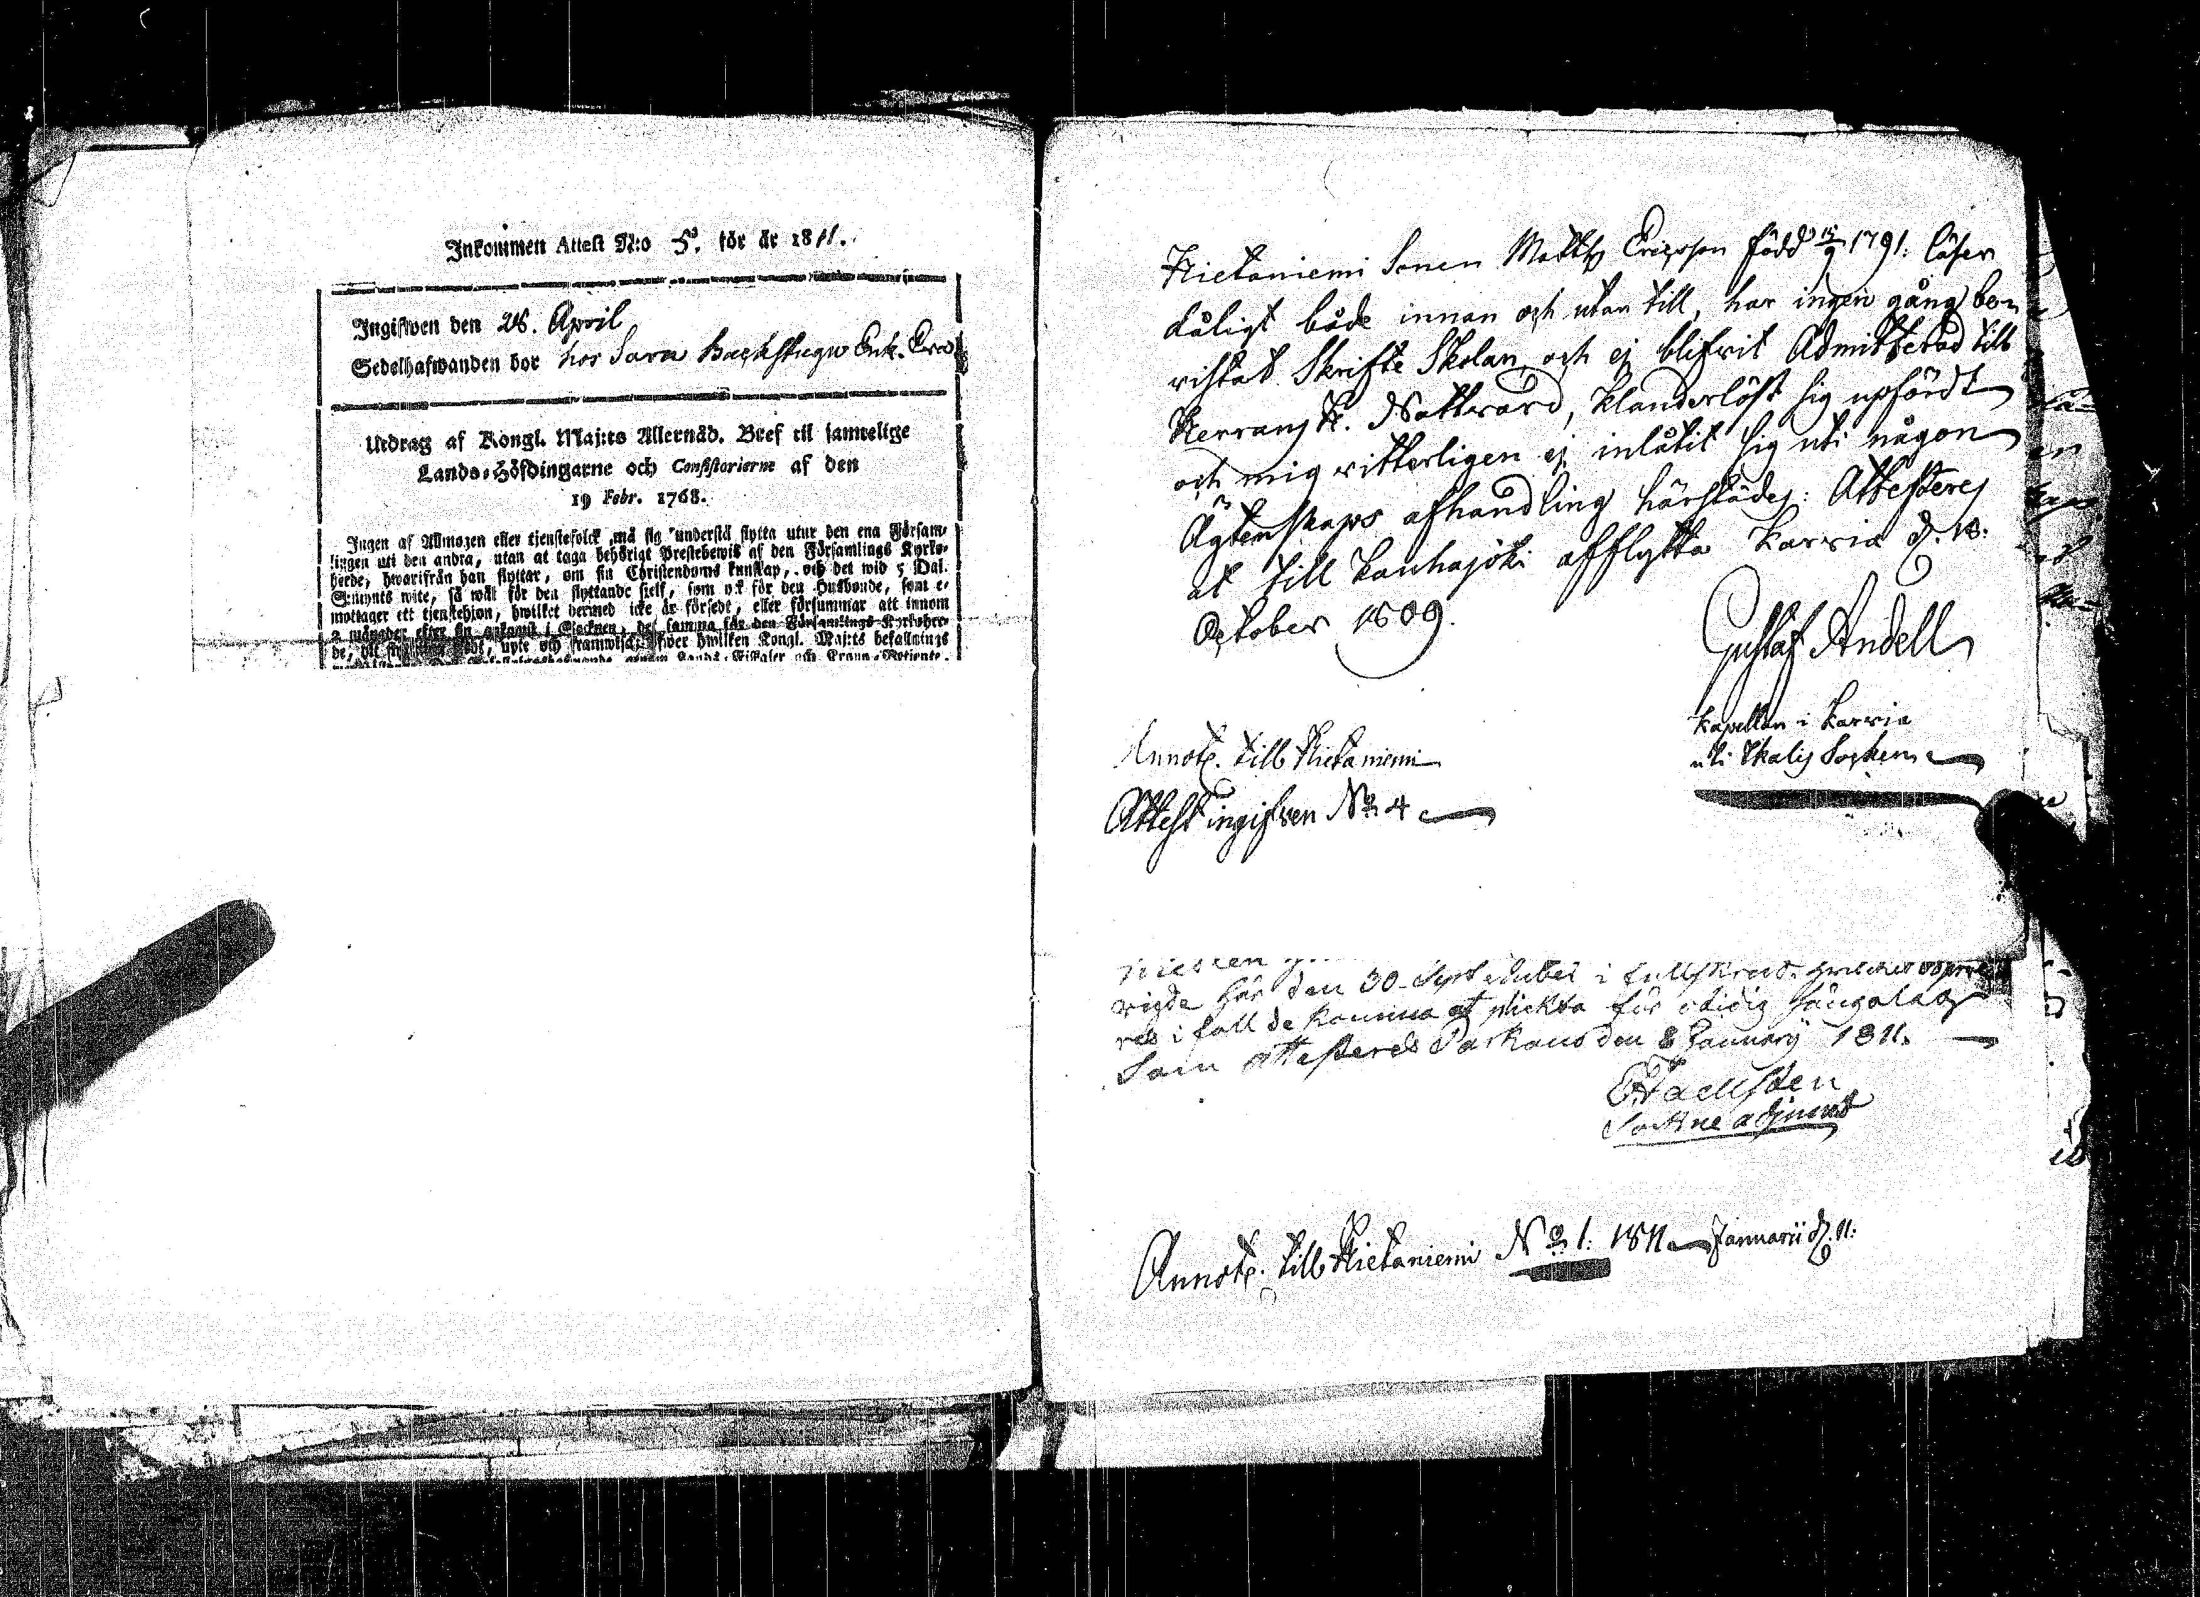 Inkommen Attest N:o 5. för år 1811.
Ingifwen den 28. April
Sedelhafwanden bor hos Sara Backstugu Enk.
Utdrag af Kongl. Maj:ts Allernåd. Bref til samtelige
Lands-Höfdingarne och Consistorierne af den
19 Febr. 1768.
Ingen af Allmogen eller tjenstefolck må sig understå flytta utur den ena Försam-
lingen uti den andra, utan at taga behörigt Prestebewis af den Församlings Kyrko-
herde, hwarifrån han flyttar, om sin Christendoms kunskap, och det wid 5 Dal.
S:mynts wite, så wäl för den flyttande sielf, som ock för den Husbonde, som e-
mottager ett tjenstehjon, hwilket dermed icke är försedt, eller försummar att innom
2 månader efter sin ankomst i Socknen, det samma för den Församlings Kyrkoher-
de, dit upte och framwisa hwilken Kongl. Maj:ts befallnings
Hietaniemi Sonen Matts Ericsson född 1791. läser
dåligt både innan och utan till, har ingen gång be-
vistat Skrifte Skolan, och ej blifvit Admitterad till
Herrans H. Nattvard, klanderlöst sig upfördt
och mig vitterligen ej inlåtit sig uti någon
Ägtenskaps afhandling härstädes: Attesteres
at till Kauhajoki afflytta Karvia d. 18.
October 1809.
Gustaf Andell
Kapellan i Karvia
uti Ikalis Socken
Annot. till Hietaniemi
Attest ingifven No 4
vigde här den 30 September i
res i fall de kunna at plickta för otidig sängalag
Som attesteres Parkano den 8 January 1811.
adjunct
Annot. till Hietaniemi No 1. 1811 Januarii d. 11.